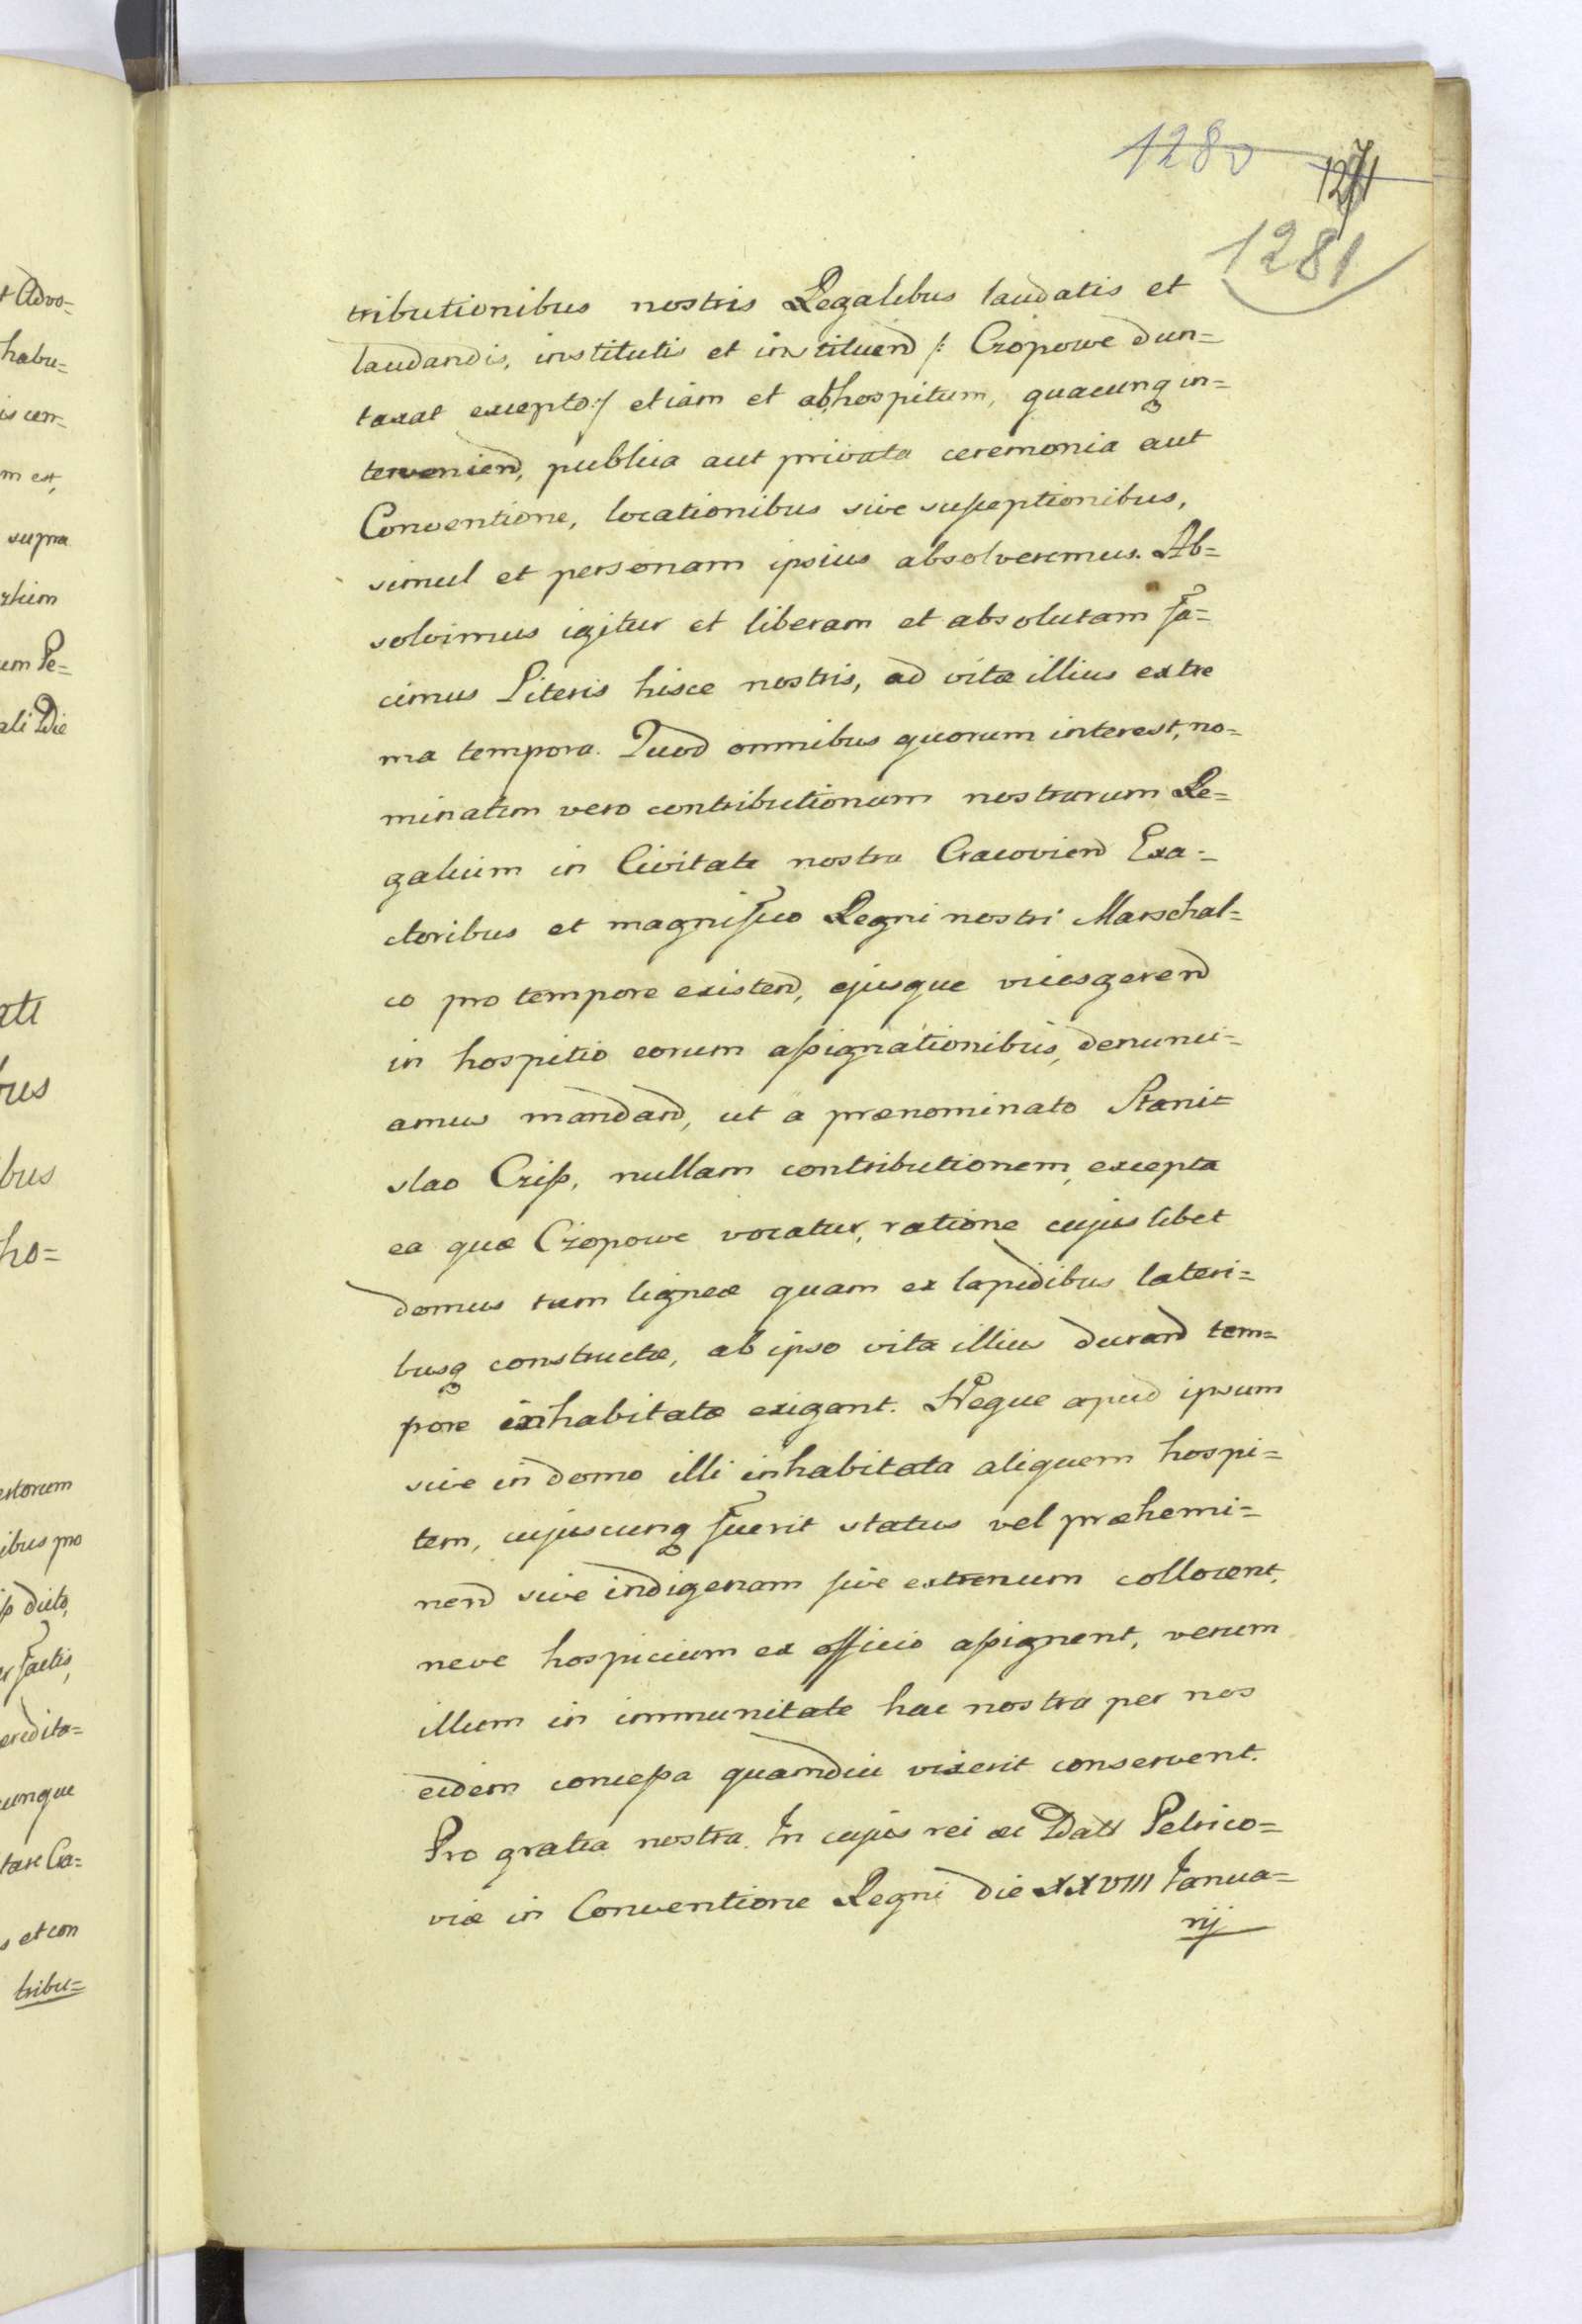 1280
1271
1281
tributionibus nostris Regalibus laudatis et
laudandis, institutis et instituend /: Czopowe dun=
taxat excepto :/ etiam et ab hospitum, quacunq in=
terveniend, publica aut privata ceremonia aut
Conventione, locationibus sive susceptionibus,
simul et personam ipsius absolveremus. Ab=
solvimus igitur et liberam et absolutam fa=
cimus Literis hisce nostris, ad vitæ illius extre
ma tempora. Quod omnibus quorum interest, no=
minatim vero contributionum nostrarum Re=
galium in Civitate nostra Cracoviend Exa=
ctoribus et magnifico Regni nostri Marschal=
co pro tempore existend, ejusque vicesgerend
in hospitio eorum assignationibus, denunci=
amus mandand, ut a prænominato Stanis=
slao Czip, nullam contributionem, excepta
ea quæ Czopowe vocatur, ratione cujuslibet
domus tum ligneæ quam ex lapidibus lateri=
busq constructæ, ab ipso vita illius durand tem=
pore inhabitatæ exigant. Neque apud ipsum
sive in domo illi inhabitata aliquem hospi=
tem, cujuscunq fuerit status vel præhemi=
nend sive indigenam sive externum collocent,
neve hospicium ex officio assignent, verum
illum in immunitate hac nostra per nos
eidem concessa quamdiu vixerit conservent.
Pro gratia nostra. In cujus rei &c Datt Petrico=
viæ in Conventione Regni die XXVIII Janua=
rij
t Advo=
habu=
is con=
m est,
supra
rhim
um Pe=
ali Die
att
bus
ibus
ho=
estorum
ibus pro
ss dicto,
r factis,
eredita=
cunque
tare Cra=
s et con
tribu=